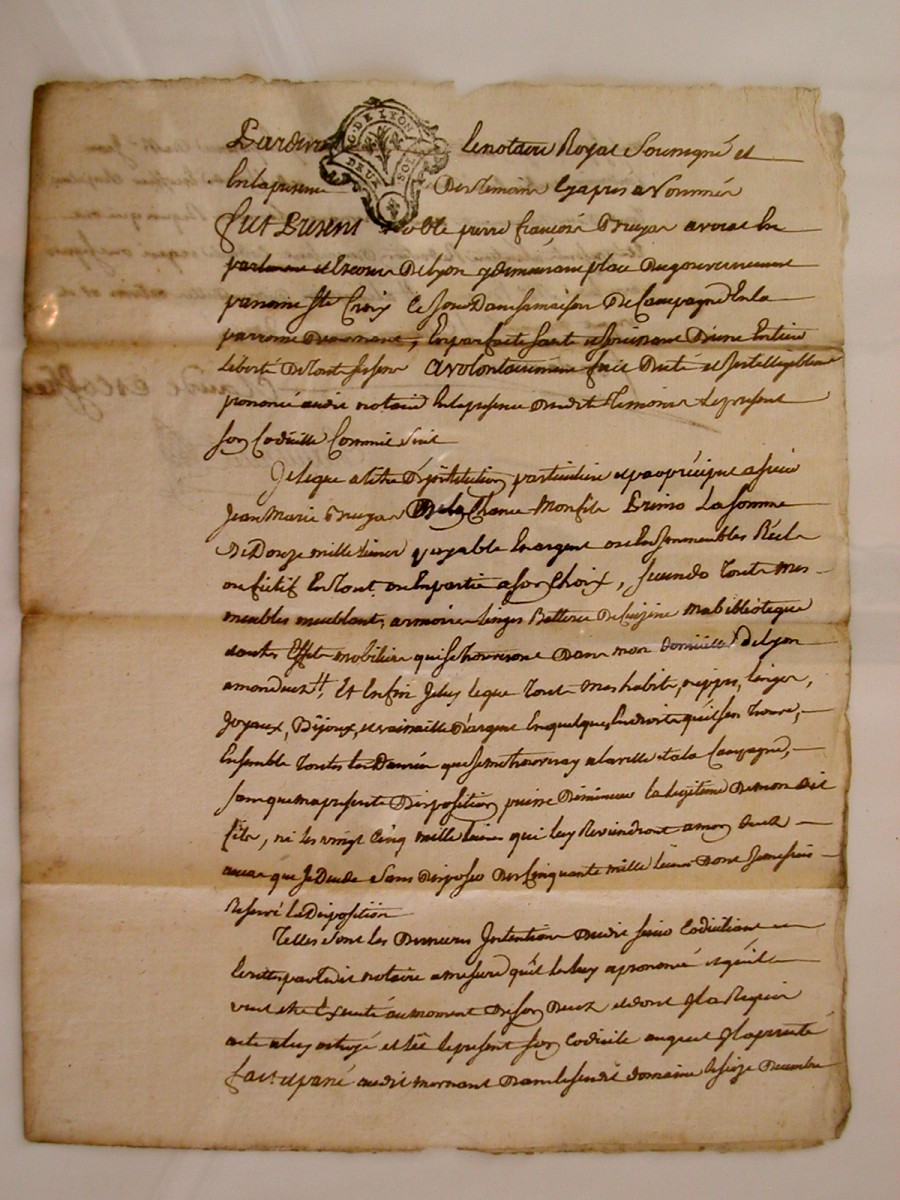 Pardevant le notaire Royal Soussigné et
En la presence Des temoins Cy apres a Nommés
fut Present noble pierre françois Bruyas avocat En
parlement et Es cours De Lyon y demeurant place Du gouvernement
paroisse Ste Croix Ce jour Dans sa maison De Campagne En la
paroisse De mornant, En parfaite santé et jouissant D'une Entiere
Liberté De tous ses sens a volontairement fait Dicté et
prononcé audit notaire En la presence Desdits temoins Le present
son Codicille Comme suit
Je legue a titre D'institution particuliere et par precipue a sieur
Jean Marie Bruyas De la Chance Mon fils Primo La somme
De Douze mille Livres payable En argent ou En Immeubles Réels
ou fictifs En tout ou En partie a son Choix, secundo Tous Mes
meubles meublants, armoires Linges Batterie De Cuizine ma bibliôteque
autres Effets mobiliers qui se trouveront Dans mon domicille De Lyon
a mon deces, Et Enfin Je luy legue Tous Mes habits, nippes, linges,
Joyaux, Bijoux, et vaisselle D'argent En quelques Endroits qu'il s'en Trouve,
Ensemble Toutes les Denrées que je me trouveray a la ville et a la Campagne,
sans que ma presente Disposition puisse Diminuer la legitime De mon dit
fils, ni les vingt Cinq mille livres qui luy Reviendront a mon deces
au cas que Je Decede sans Disposer Des Cinquante mille livres Dont Je me suis
Reservé La Disposition
Telles sont les Dernieres Intentions Dudit sieur Codicillant
Ecrittes par ledit notaire a mesure qu'il les luy a prononcé et qu'il
veut etre Executé au moment De son Deces et dont Il a Requis
acte a luy octroyé et le present son Codicile auquel Il a persisté
fait et passé audit mornant Dans le susdit domaine le seize Decembre
G. DE LYON
DEUX SOLS